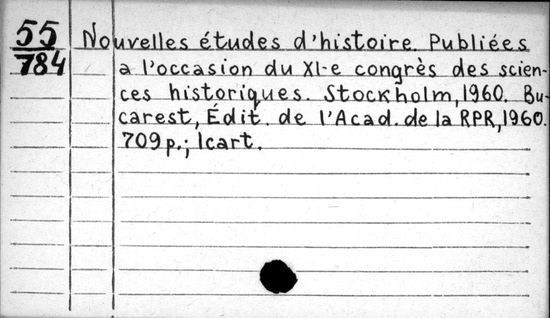 55
784
Nouvelles études d'histoire. Publiées
a l'occasion du XI-e congrès des scien-
ces historiques. Stockholm, 1960. Bu-
carest, Édit. de l'Acad. de la RPR, 1960.
709 p.; 1cart.